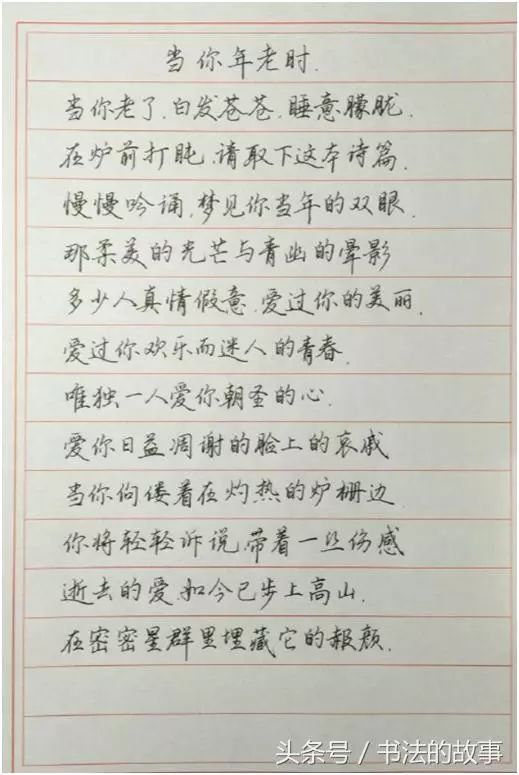 当你年老时.
当你老了,白发苍苍,睡意朦胧,
在炉前打盹,请取下这本诗篇,
慢慢吟诵,梦见你当年的双眼,
那柔美的光芒与青幽的晕影
多少人真情假意,爱过你的美丽,
爱过你欢乐而迷人的青春,
唯独一人爱你朝圣的心,
爱你日益凋谢的脸上的哀戚
当你佝偻着在灼热的炉栅边
你将轻轻诉说,带着一丝伤感
逝去的爱,如今已步上高山,
在密密星群里埋藏它的赧颜.
头条号 / 书法的故事